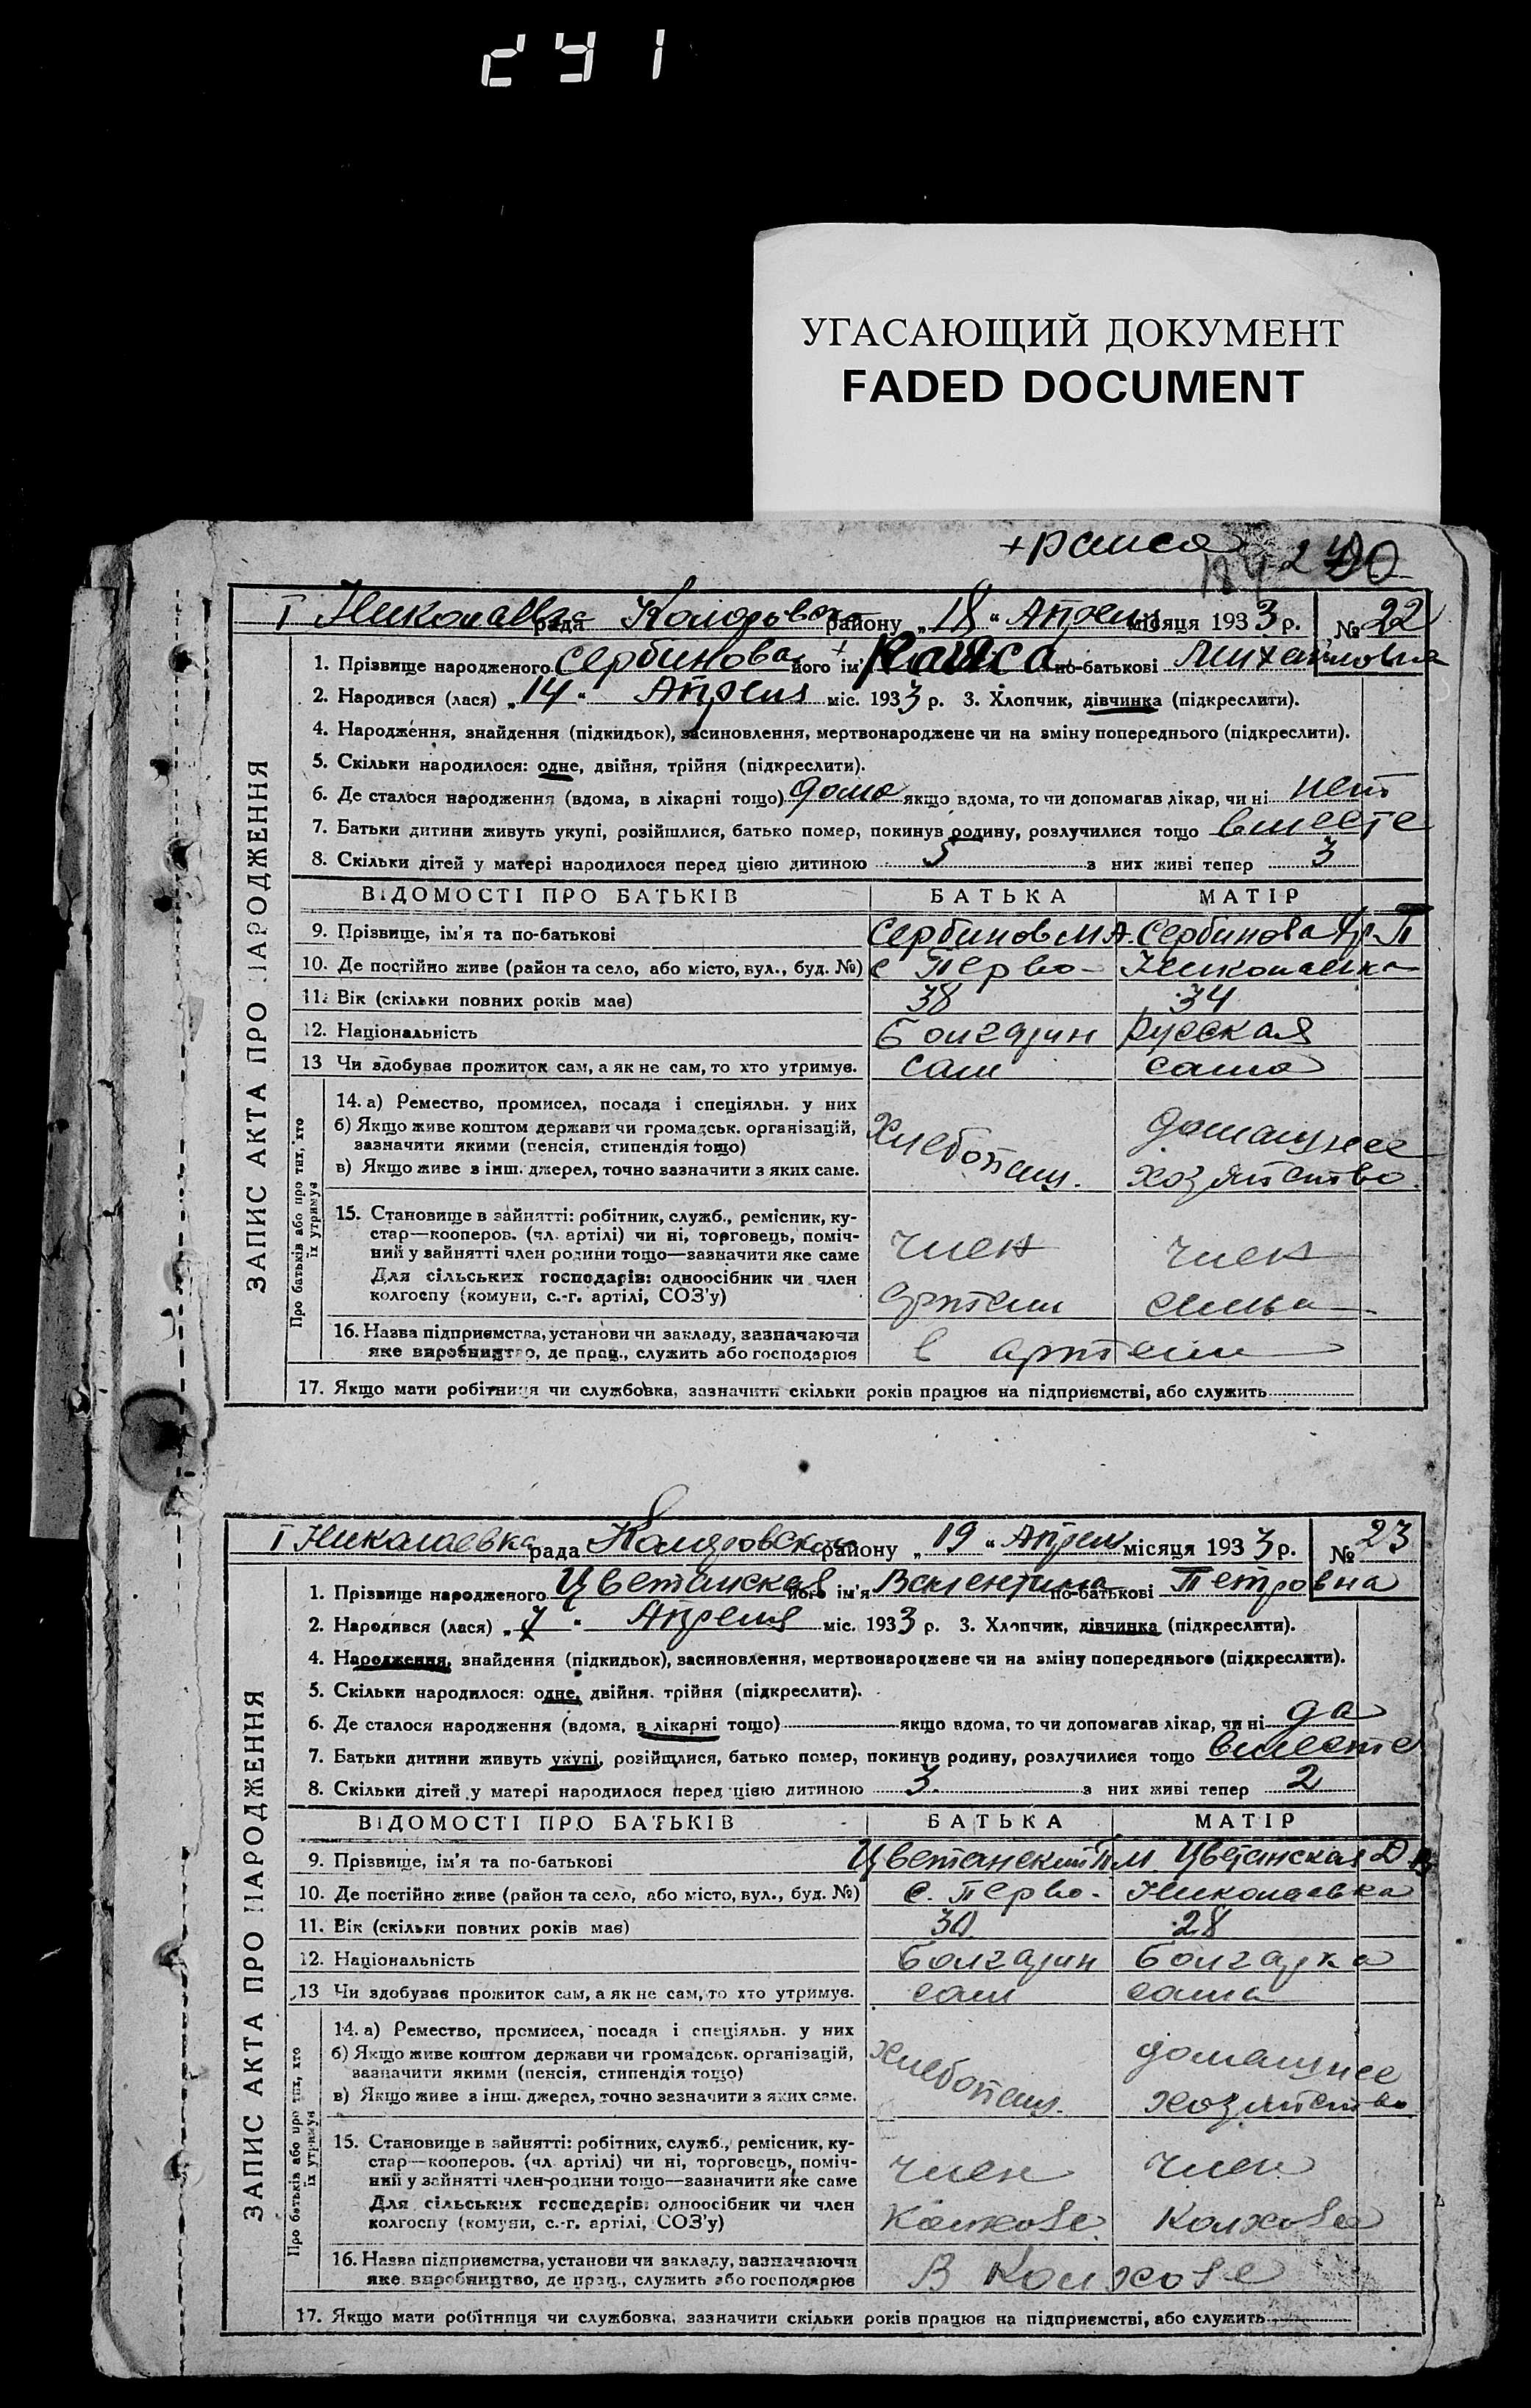 241
УГАСАЮЩИЙ ДОКУМЕНТ
FADED DOCUMENT
+ раиса
200
I Николаевка рада району „18“ Апреля місяця 1933 р. № 22
1. Прізвище народженого Сербинова його ім'я + Раиса по-батькові Михайловна
2. Народився (лася) „14“ Апреля міс. 1933 р. 3. Хлопчик, дівчинка (підкреслити).
4. Народження, знайдення (підкидьок), засиновлення, мертвонароджене чи на зміну попереднього (підкреслити).
5. Скільки народилося: одне, двійня, трійня (підкреслити).
6. Де сталося народження (вдома, в лікарні тощо) дома якщо вдома, то чи допомагав лікар, чи ні нет
7. Батьки дитини живуть укупі, розійшлися, батько помер, покинув родину, розлучилися тощо вместе
8. Скільки дітей у матері народилося перед цією дитиною 5 з них живі тепер 3
ЗАПИС АКТА ПРО НАРОДЖЕННЯ
ВІДОМОСТІ ПРО БАТЬКІВ БАТЬКА МАТІР
9. Прізвище, ім'я та по-батькові Сербинов М А. Сербинова П
10. Де постійно живе (район та село, або місто, вул., буд. №) с Перво- Николаевка
11. Вік (скільки повних років має) 38 34
12. Національність Болгарин русская
13 Чи здобував прожиток сам, а як не сам, то хто утримує. сам сама
Про батьків або про тих, хто їх утримує
14. а) Ремество, промисел, посада і спеціяльн. у них
б) Якщо живе коштом держави чи громадськ. організацій,
зазначити якими (пенсія, стипендія тощо)
в) Якщо живе з інш. джерел, точно зазначити з яких саме.
Хлебопаш. домашнее
хозяйство
15. Становище в зайнятті: робітник, служб., ремісник, ку-
стар—кооперов. (чл. артілі) чи ні, торговець, поміч-
ний у зайнятті член родини тощо—зазначити яке саме
Для сільських господарів: одноосібник чи член
колгоспу (комуни, с.-г. артілі, СОЗ'у)
член член
артели семьи
16. Назва підприємства, установи чи закладу, зазначаючи
яке виробництво, де прац., служить або господарює
в артели
17. Якщо мати робітниця чи службовка, зазначити скільки років працює на підприємстві, або служить
I Николаевка рада Коларовского району „19“ Апреля місяця 1933 р. № 23
1. Прізвище народженого Цветанская його ім'я Валентина по-батькові Петровна
2. Народився (лася) „7“ Апреля міс. 1933 р. 3. Хлопчик, дівчинка (підкреслити).
4. Народження, знайдення (підкидьок), засиновлення, мертвонароджене чи на зміну попереднього (підкреслити).
5. Скільки народилося: одне, двійня, трійня (підкреслити).
6. Де сталося народження (вдома, в лікарні тощо) якщо вдома, то чи допомагав лікар, чи ні да
7. Батьки дитини живуть укупі, розійшлися, батько помер, покинув родину, розлучилися тощо вместе
8. Скільки дітей у матері народилося перед цією дитиною 3 з них живі тепер 2
ЗАПИС АКТА ПРО НАРОДЖЕННЯ
ВІДОМОСТІ ПРО БАТЬКІВ БАТЬКА МАТІР
9. Прізвище, ім'я та по-батькові Цветанский П М. Цветанская Д
10. Де постійно живе (район та село, або місто, вул., буд. №) с. Перво- Николаевка
11. Вік (скільки повних років має) 30 28
12. Національність Болгарин Болгарка
13 Чи здобував прожиток сам, а як не сам, то хто утримує. сам сама
Про батьків або про тих, хто їх утримує
14. а) Ремество, промисел, посада і спеціяльн. у них
б) Якщо живе коштом держави чи громадськ. організацій,
зазначити якими (пенсія, стипендія тощо)
в) Якщо живе з інш. джерел, точно зазначити з яких саме.
хлебопаш. домашнее
хозяйство
15. Становище в зайнятті: робітник, служб., ремісник, ку-
стар—кооперов. (чл. артілі) чи ні, торговець, поміч-
ний у зайнятті член родини тощо—зазначити яке саме
Для сільських господарів: одноосібник чи член
колгоспу (комуни, с.-г. артілі, СОЗ'у)
член член
колхоза колхоза
16. Назва підприємства, установи чи закладу, зазначаючи
яке виробництво, де прац., служить або господарює
В Колхозе
17. Якщо мати робітниця чи службовка, зазначити скільки років працює на підприємстві, або служить